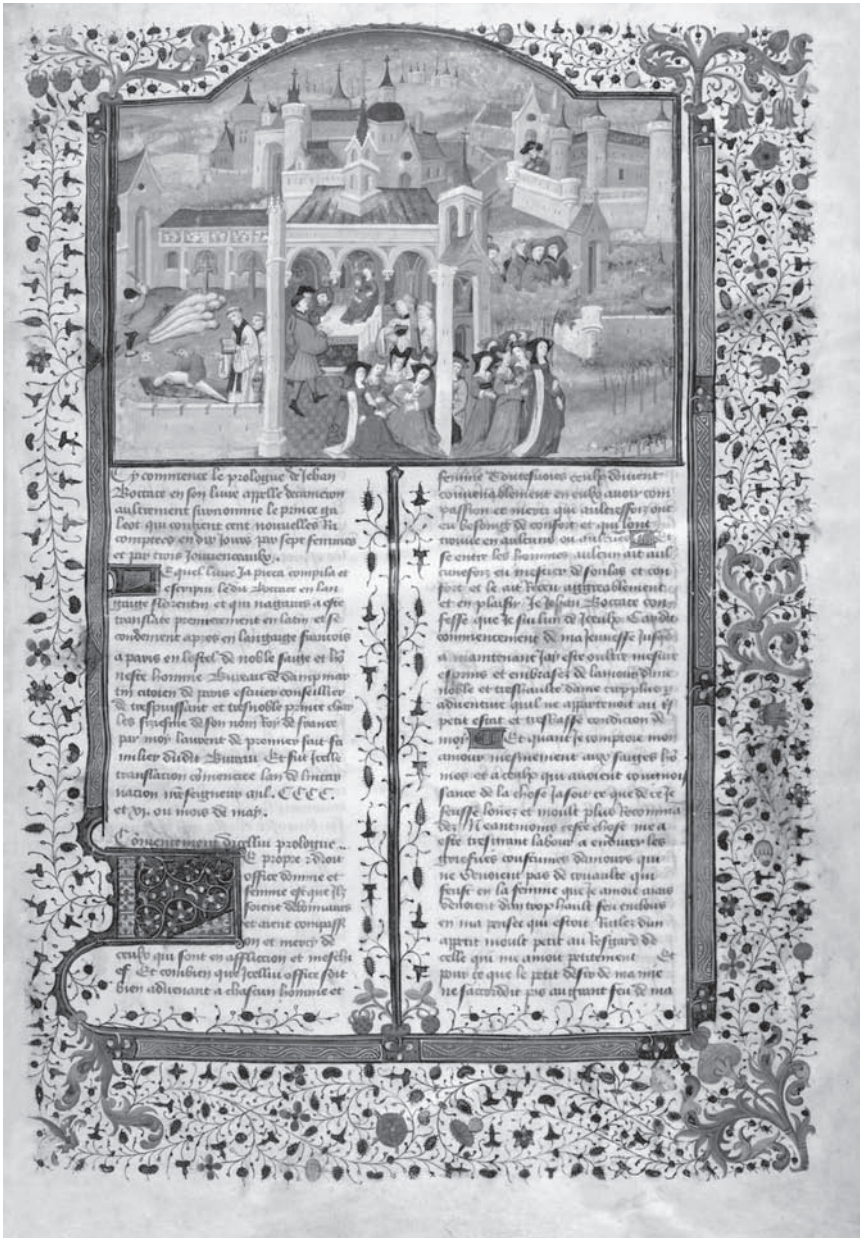 Cy commence le prologue de Jehan
Boccace en son livre appelle decameron
aultrement surnomme le prince ga
leot qui contient cent nouvelles Ra
comptees en dix Jours par sept femmes
et par trois Jouvenceaulx.
Lequel livre Ja pieca compila et
escripu ledit Boccace en lan
gaige florentin et qui nagaires a este
translate premierement en latin et se
condement apres en langaige francois
a paris en lostel de noble saige et ho
neste homme Bureau de dampmar
tin citoien de paris escuier conseillier
de trespuissant et tresnoble prince char
les siziesme de son nom Roy de france
par moy laurent de premier fait fa
milier dudit Bureau Et fut Jcelle
translation commencee lan de lincar
nacion nreseigneur mil. CCCC.
et xi. ou mois de may.
Comencement dicelliu prologue
propre droit
office domme et
femme est que Jlz
soient debonnaires
et aient compassi
on et mercy de
ceulx qui sont en affliction et meschi
ef Et combien que Jcelliu office soit
bien advenant a chascun homme et
femme Toutesvoies ceulx doivent
convenablement en eulx avoir com
passion et mercy qui aulcunesfois ont
eu besoing de confort et qui lont
trouve en aulcuns ou aulcunes
se entre les hommes aulcun ait aul
cunefois eu mestier de soulas et con
fort et le ait Receu aggreablement
et en plaisir Je Jehan Boccace con
fesse que Je suis lun de Jceulx Car du
commencement de ma Jeunesse Jusqs
a maintenant Jay este oultre mesure
espris et embrase de lamour dune
noble et treshaulte dame
adventure quil ne appartenoit au
petit estat et tresbasse condition de
moy Et quant Je comptoie mon
amour mesmement aux saiges ho
mes et a ceulx qui avoient connois
sance de la chose Jasoit ce que de ce Je
feusse louez et moult plus Recomma
dez Neantmoins ceste chose me a
este tresgrant labour a endurer les
griefves coustumes damours qui
ne venoient pas de cruaulte qui
feust en la femme que Je amoie mais
venoient dun trop hault feu enclous
en ma pensee qui estoit Rulez dun
appetit moult petit au Resgard de
celle qui me amoit petitement Et
pour ce que le petit desir de ma mie
ne saccordoit pas au grant feu de ma